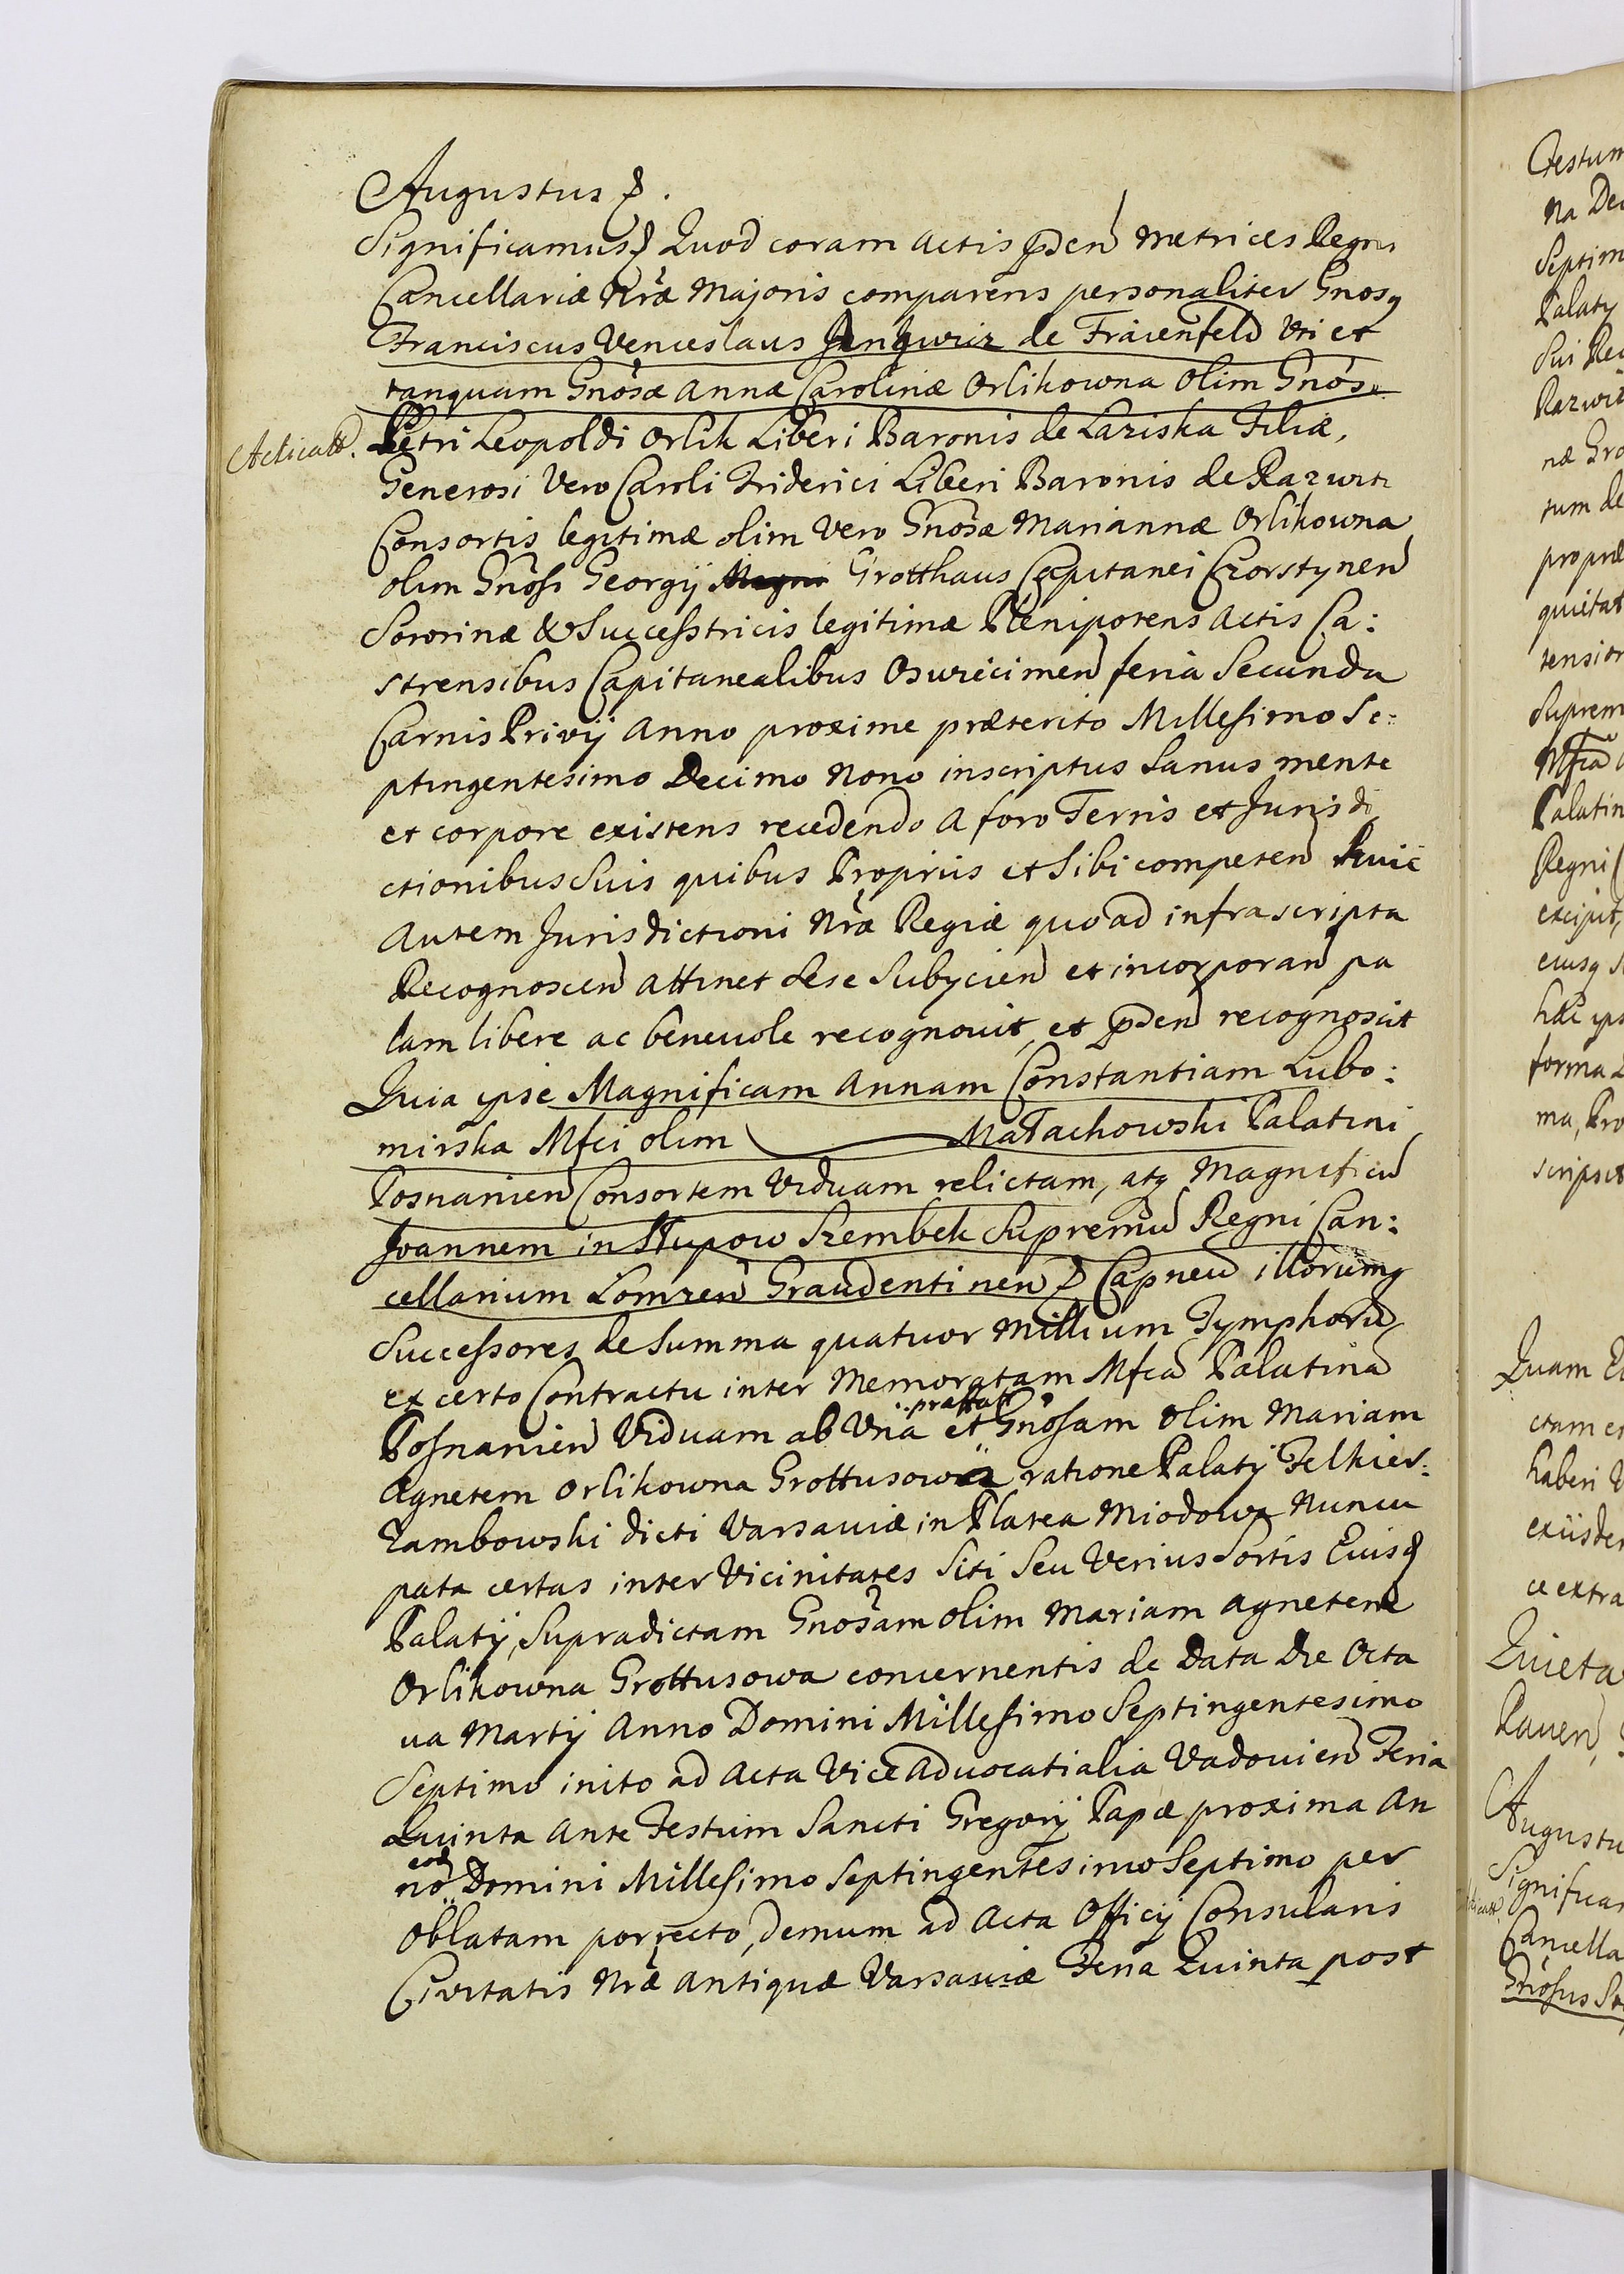 Augustus &.
Significamus & Quod coram Actis pnden Metrices Regni
Cancellariæ Nræ Majoris comparens personaliter Gnosq
Franciscus Venceslaus de Fraienfeld Uti et
tanquam Gnosæ Annæ Carolinæ Orlikowna Olim Gnosi
Acticatt. Petri Leopoldi Orlik Liberi Baronis de Laziska Filiæ,
Generosi Vero Caroli Friderici Liberi Baronis de Razwitz
Consortis legitimæ olim Vero Gnosæ Mariannæ Orlikowna
olim Gnosi Georgij Grotthaus Capitanei Czorstynen
Sororinæ & Successtricis legitimæ Plenipotens Actis Ca:
strensibus Capitanealibus Oswiecimen feria Secunda
Carnis Privij Anno proxime præterito Millesimo Se:
ptingentesimo Decimo Nono inscriptus Sanus mente
et corpore existens recedendo a foro Terris et Jurisdi
ctionibus Suis quibus Propriis et Sibi competen huic
Autem Jurisdictioni Nræ Regiæ quoad infrascripta
Recognoscen attinet Sese Subycien et incorporan pa
lam libere ac benevole recognovit et pnden recognoscit
Quia ipse Magnificam Annam Constantiam Lubo:
mirska Mfci olim Małachowski Palatini
Posnanien Consortem Viduam relictam, atq Magnificu
Joannem in Słupow Szembek Supremu Regni Can:
cellarium Lomzen Graudentinen & Capneu illorumq
Successores de Summa quatuor Millium Tymphoru
ex certo Contractu inter Memoratam Mfca Palatina
Posnanien Viduam ab Una et præfatt Gnosam olim Mariam
Agnetem Orlikowna Grottusowa ratione Palaty Felkier:
zambowski dicti Varsaviæ in Platea Miodowa Nuncu
pata certas inter Vicinitates Siti Seu Verius Sortis Ejusq
Palatij, Supradictam Gnosam olim Mariam Agnetem
Orlikowna Grottusowa concernentis de Data Die Octa
va Martij Anno Domini Millesimo Septingentesimo
Septimo inito ad Acta Vice Advocatialia Vadovien Feria
Quinta Ante Festum Sancti Gregorij Papæ proxima An
no eod Domini Millesimo Septingentesimo Septimo per
Oblatam porrecto, demum ad Acta Officij Consularis
Civitatis Nræ Antiquæ Varsaviæ Feria Quinta post